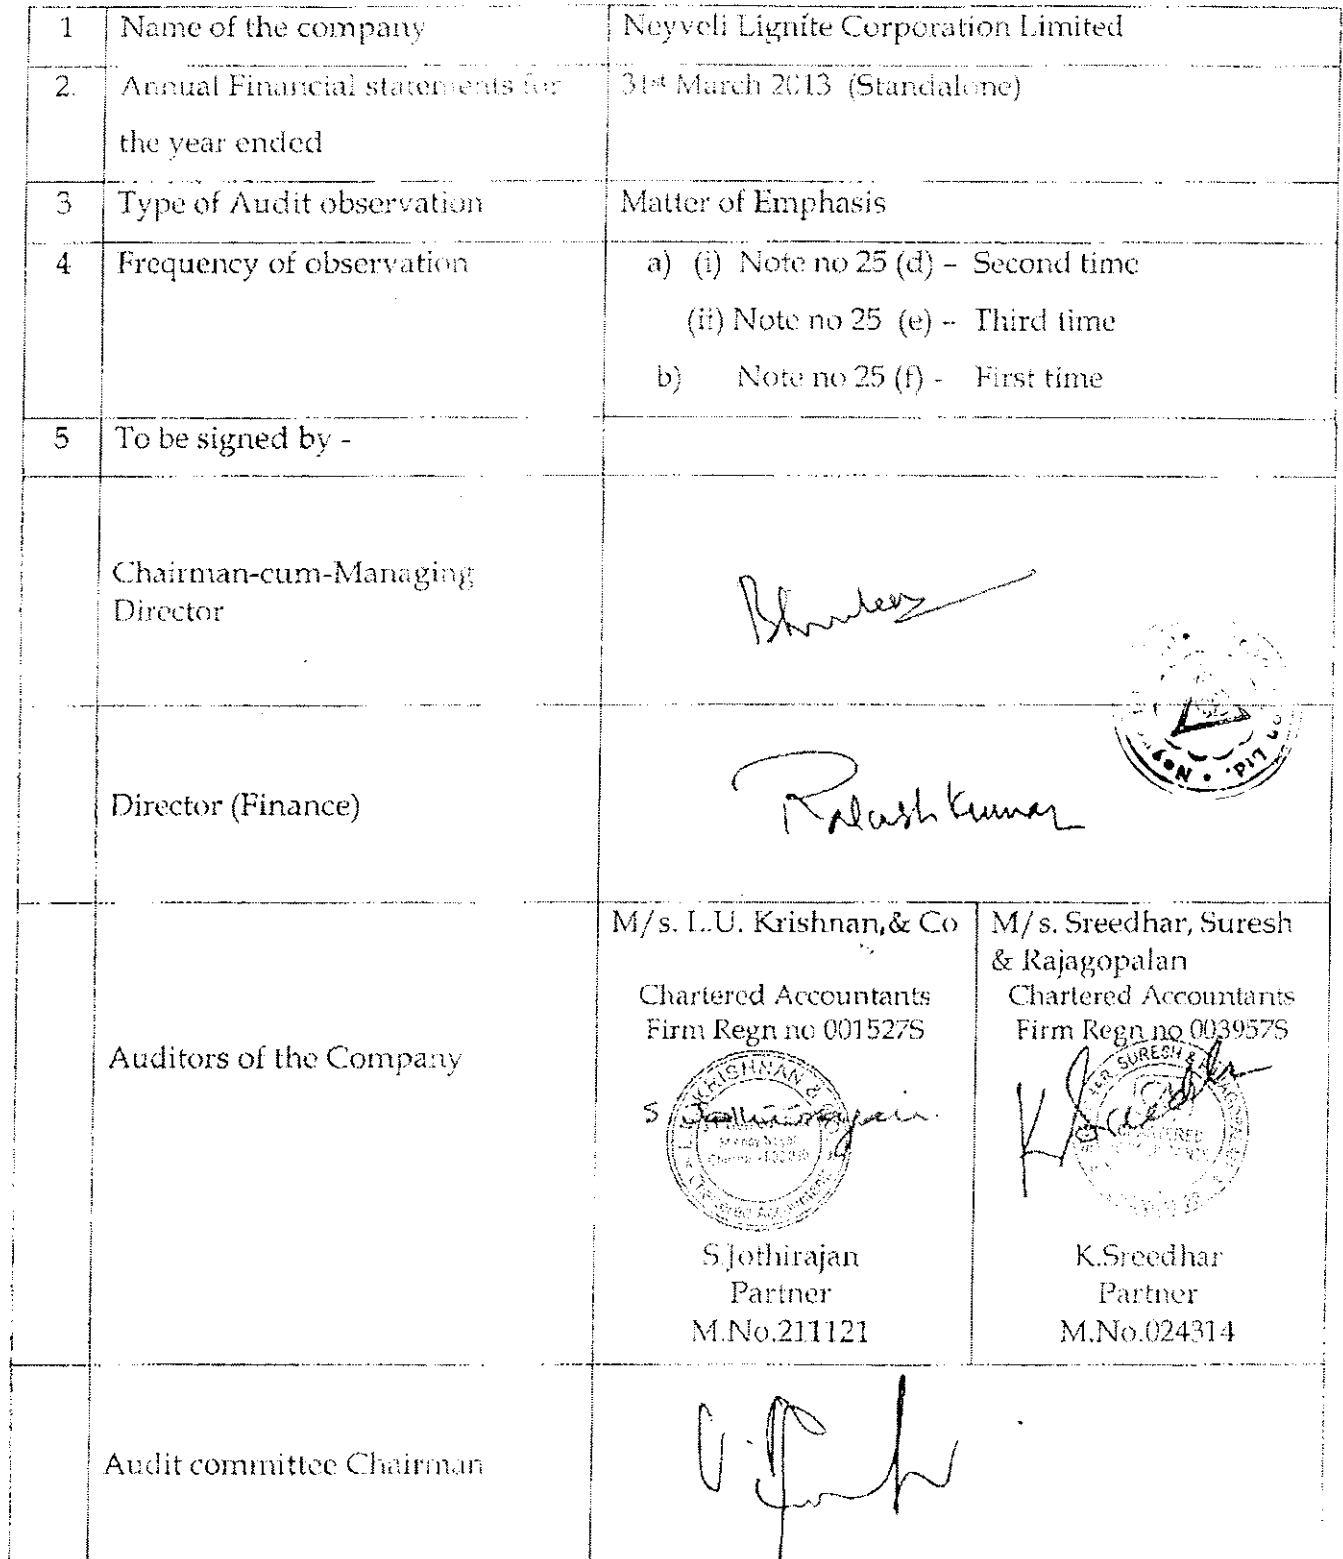 1 Name of the company Neyveli Lignite Corporation Limited
2. Annual Financial statements for 31st March 2013 (Standalone)
the year ended
3 Type of Audit observation Matter of Emphasis
4 Frequency of observation a) (i) Note no 25 (d) – Second time
(ii) Note no 25 (e) – Third time
b) Note no 25 (f) - First time
5 To be signed by -
Chairman-cum-Managing
Director
Director (Finance)
Ltd. • Ney
M/s. L.U. Krishnan,& Co
Chartered Accountants
Firm Regn no 001527S
S.Jothirajan
Partner
M.No.211121
M/s. Sreedhar, Suresh
& Rajagopalan
Chartered Accountants
Firm Regn no 003957S
K Sreedhar
K.Sreedhar
Partner
M.No.024314
Auditors of the Company
KRISHNAN &
Audit committee Chairman